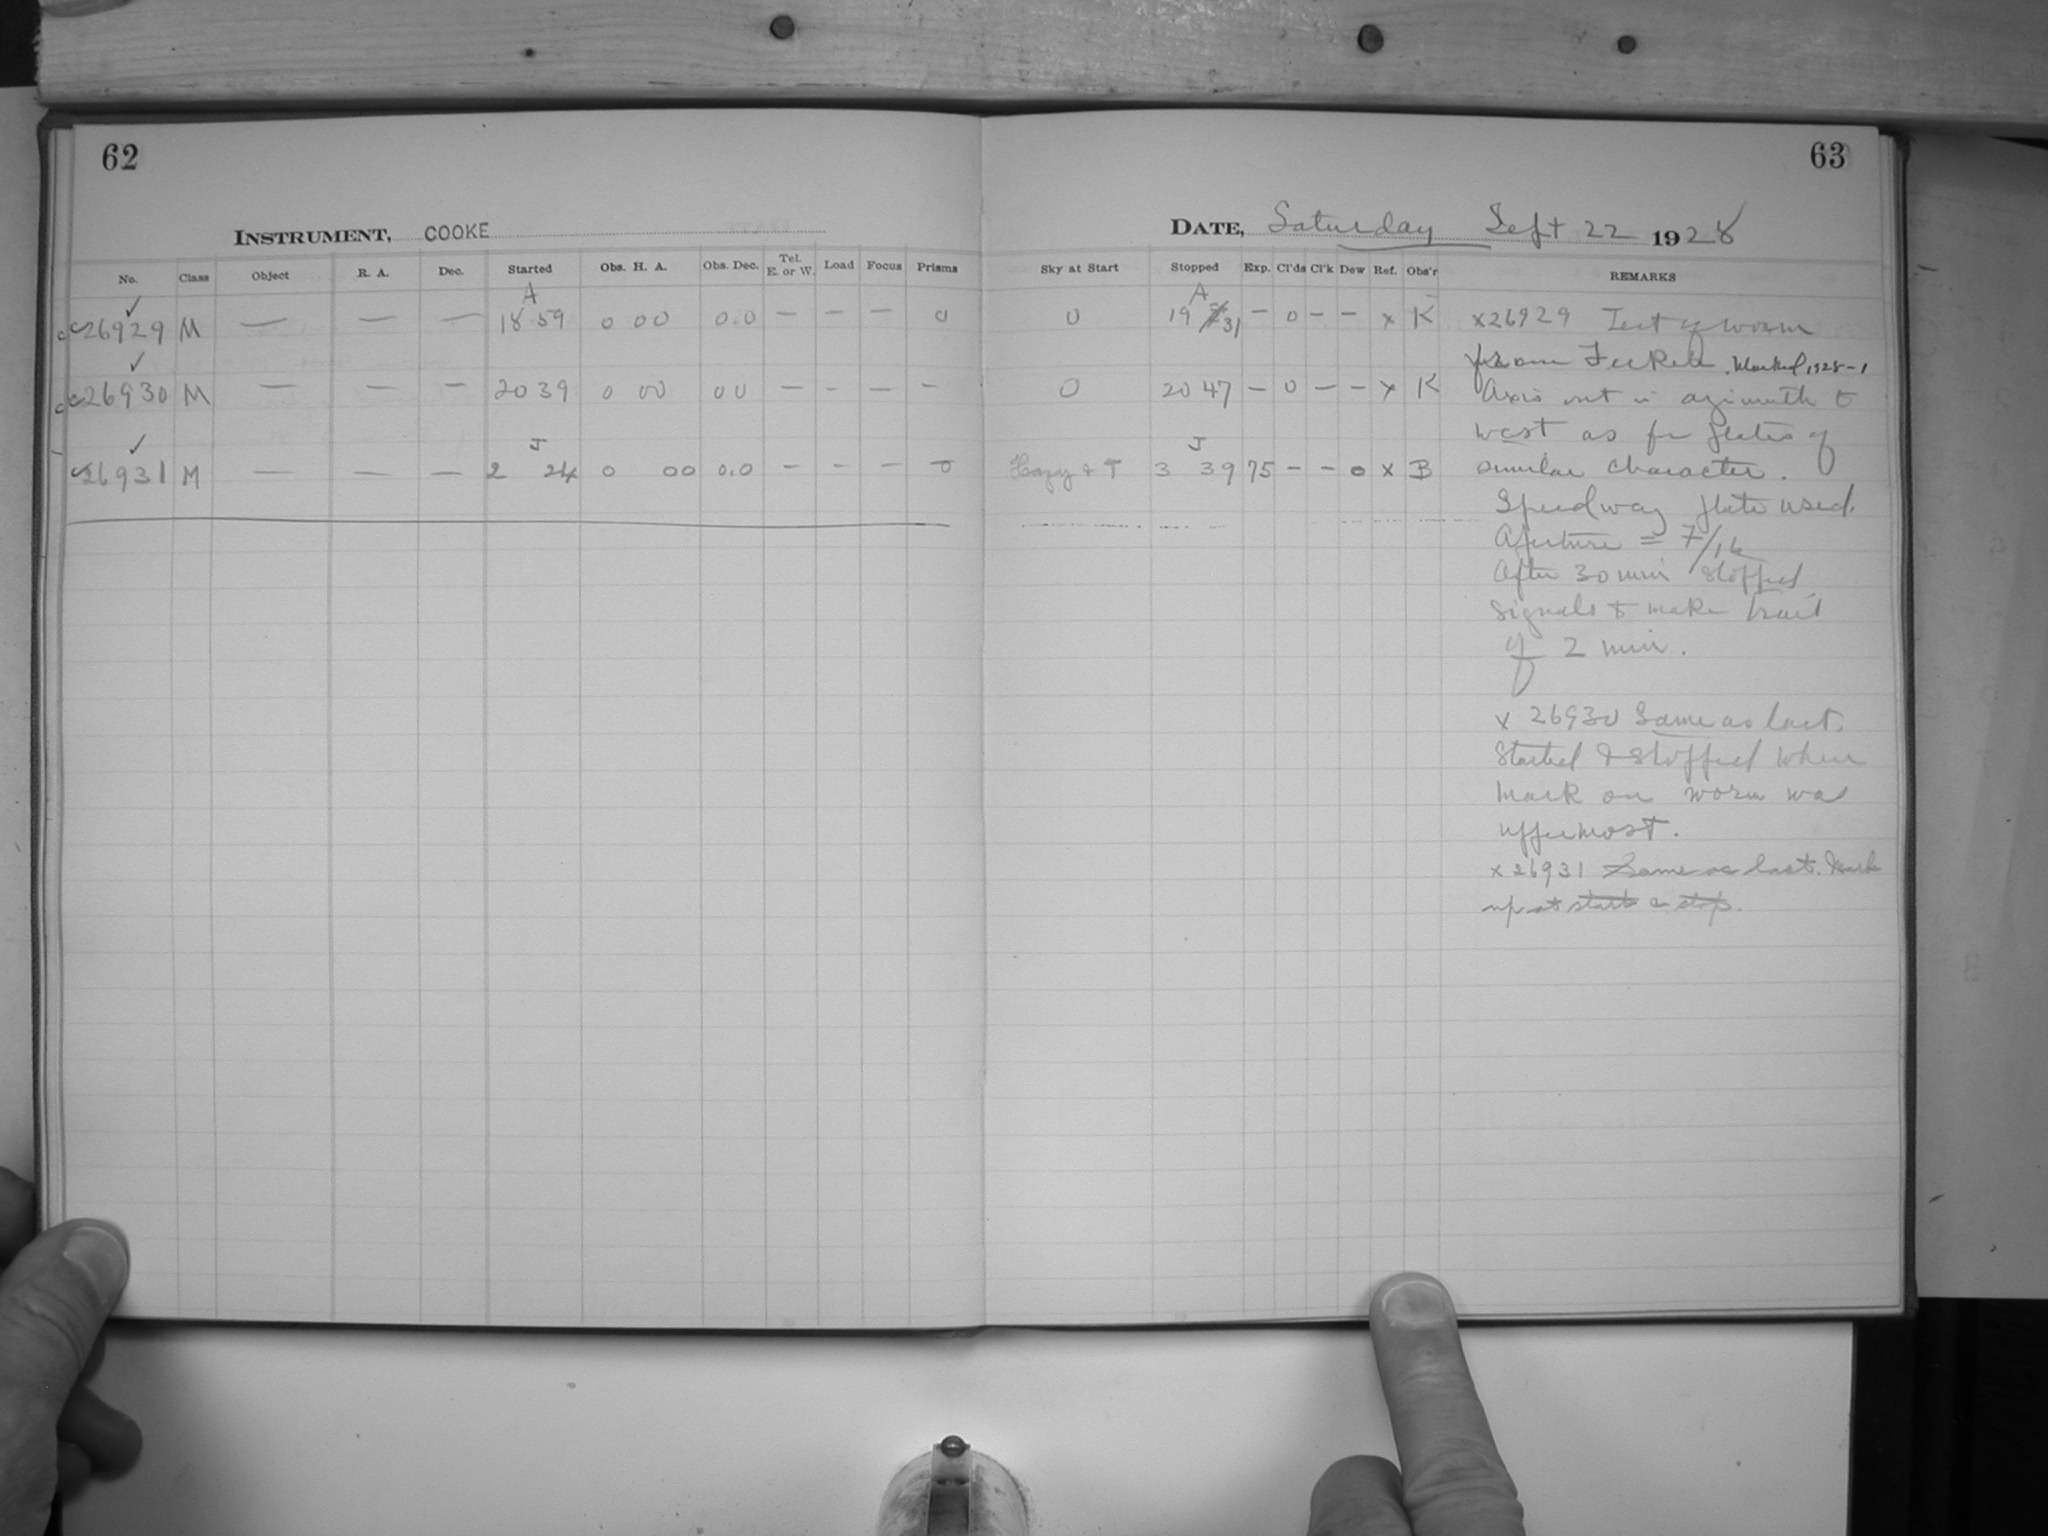 62
63
INSTRUMENT, COOKE
DATE, Saturday Sept 22 1928
No. Class Object R. A. Dec. Started Obs. H. A. Obs. Dec. Tel. E. or W. Load Focus Prisms Sky at Start Stopped Exp. Cl'ds Cl'k Dew Ref. Obs'r REMARKS
A A
c26929 M — — — 18 59 0 00 0.0 — — — 0 0 19 31 — 0 — — x K
c26930 M — — — 20 39 0 00 00 — — — — 0 20 47 — 0 — — x K
J J
c26931 M — — — 2 24 0 00 0.0 — — — 0 Hazy & T 3 39 75 — — 0 x B
x26929 Test of worm
from Fecker. Marked 1928-1
Axis out in azimuth to
west as for plates of
similar character.
Speedway plate used.
Aperture = 7/16
After 30 min stopped
signals to make trail
of 2 min.
x 26930 Same as last.
Started & stopped when
mark on worm was
uppermost.
x 26931 Same as last. Mark
up at start & stop.